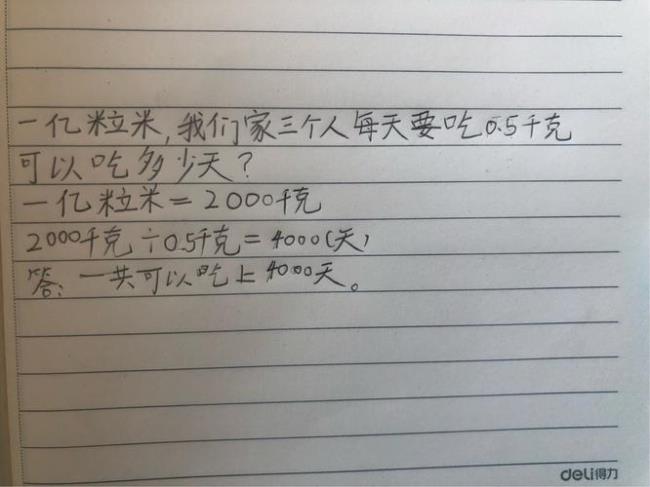 一亿粒米,我们家三个人每天要吃0.5千克
可以吃多少天?
一亿粒米=2000千克
2000千克÷0.5千克=4000(天)
答:一共可以吃上4000天。
deli得力